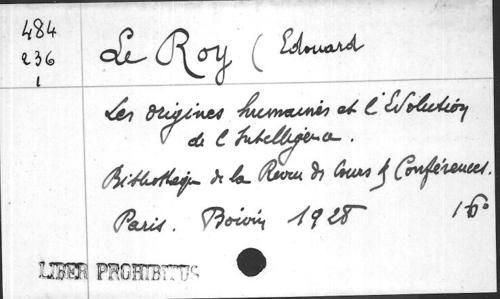 484
236
1
Le Roy ( Edouard
Les origines humaines et l'Evolution
de l'Intelligence.
Bibliothèque de la Revue des Cours & Conférences.
Paris. Boivin 1928 16°
LIBER PROHIBITUS